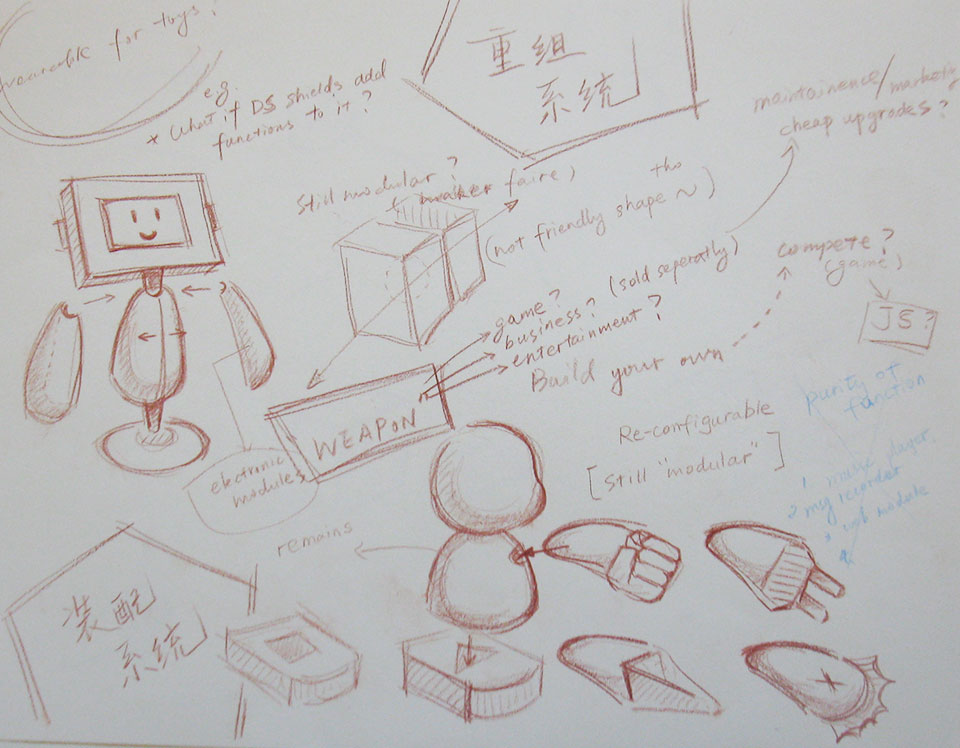 wearable for toys?
e.g.
* What if DS shields add
functions to it?
重组
系统
maintainence/marketing
cheap upgrades?
Still modular?
maker faire)
tho
(not friendly shape ~)
game?
business? (sold seperatly)
entertainment?
compete?
(game)
JS?
Build your own
WEAPON
electronic
modules
Re-configurable
[Still "modular"]
purity of
function
1 music player,
2 msg recorder
usb module
remains
装配
系统